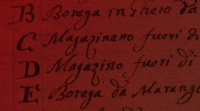 B Borega in Gheto da
C Magazineno fuori di
D Magazino fuori di
E Borega da Marang